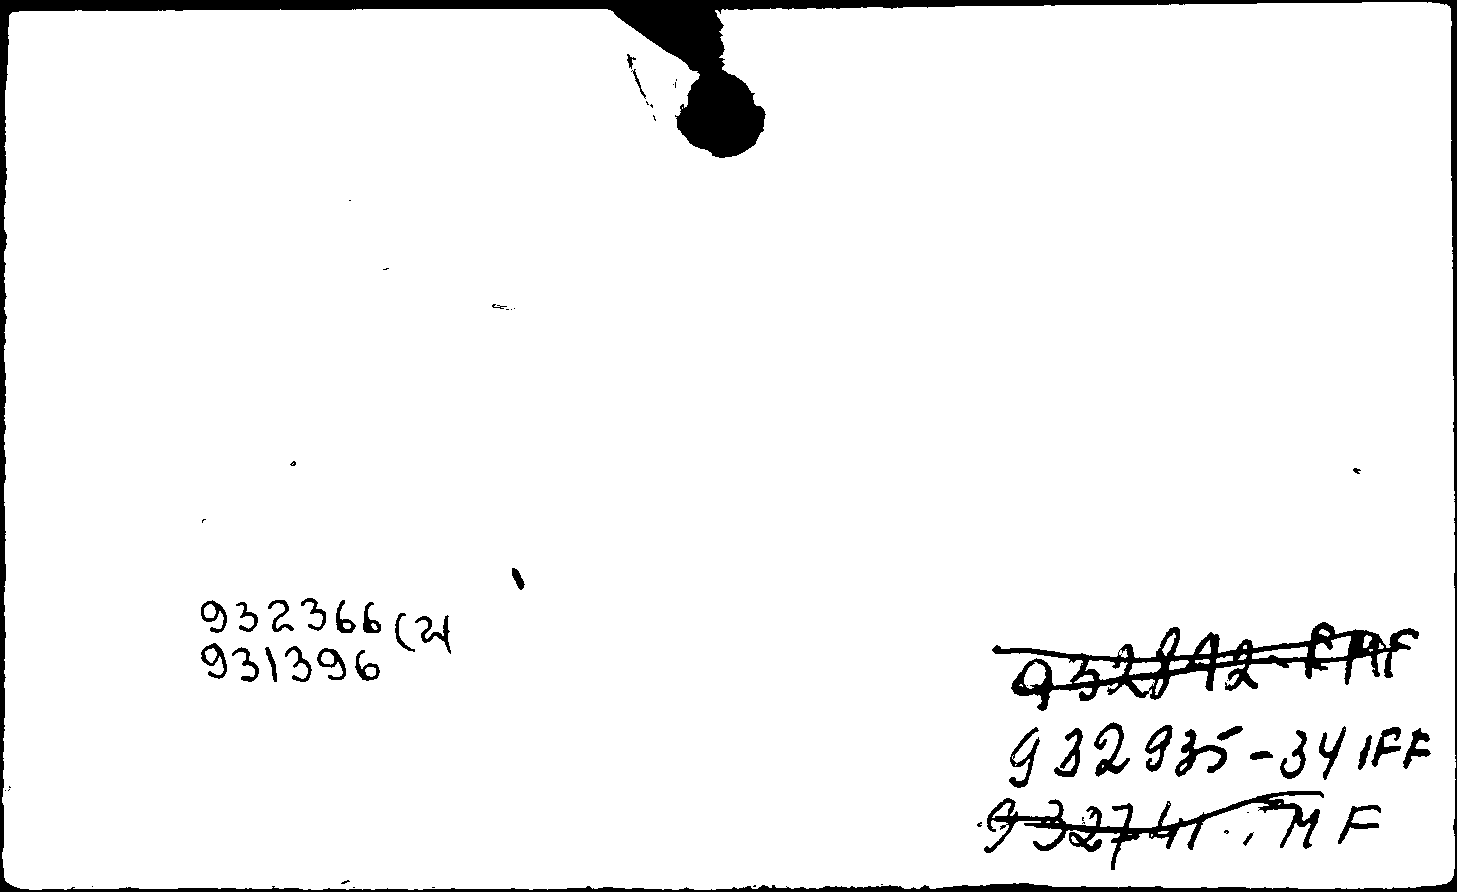 932366 (2)
931396
932842-FMF
932935-34 IFF
932741 MF